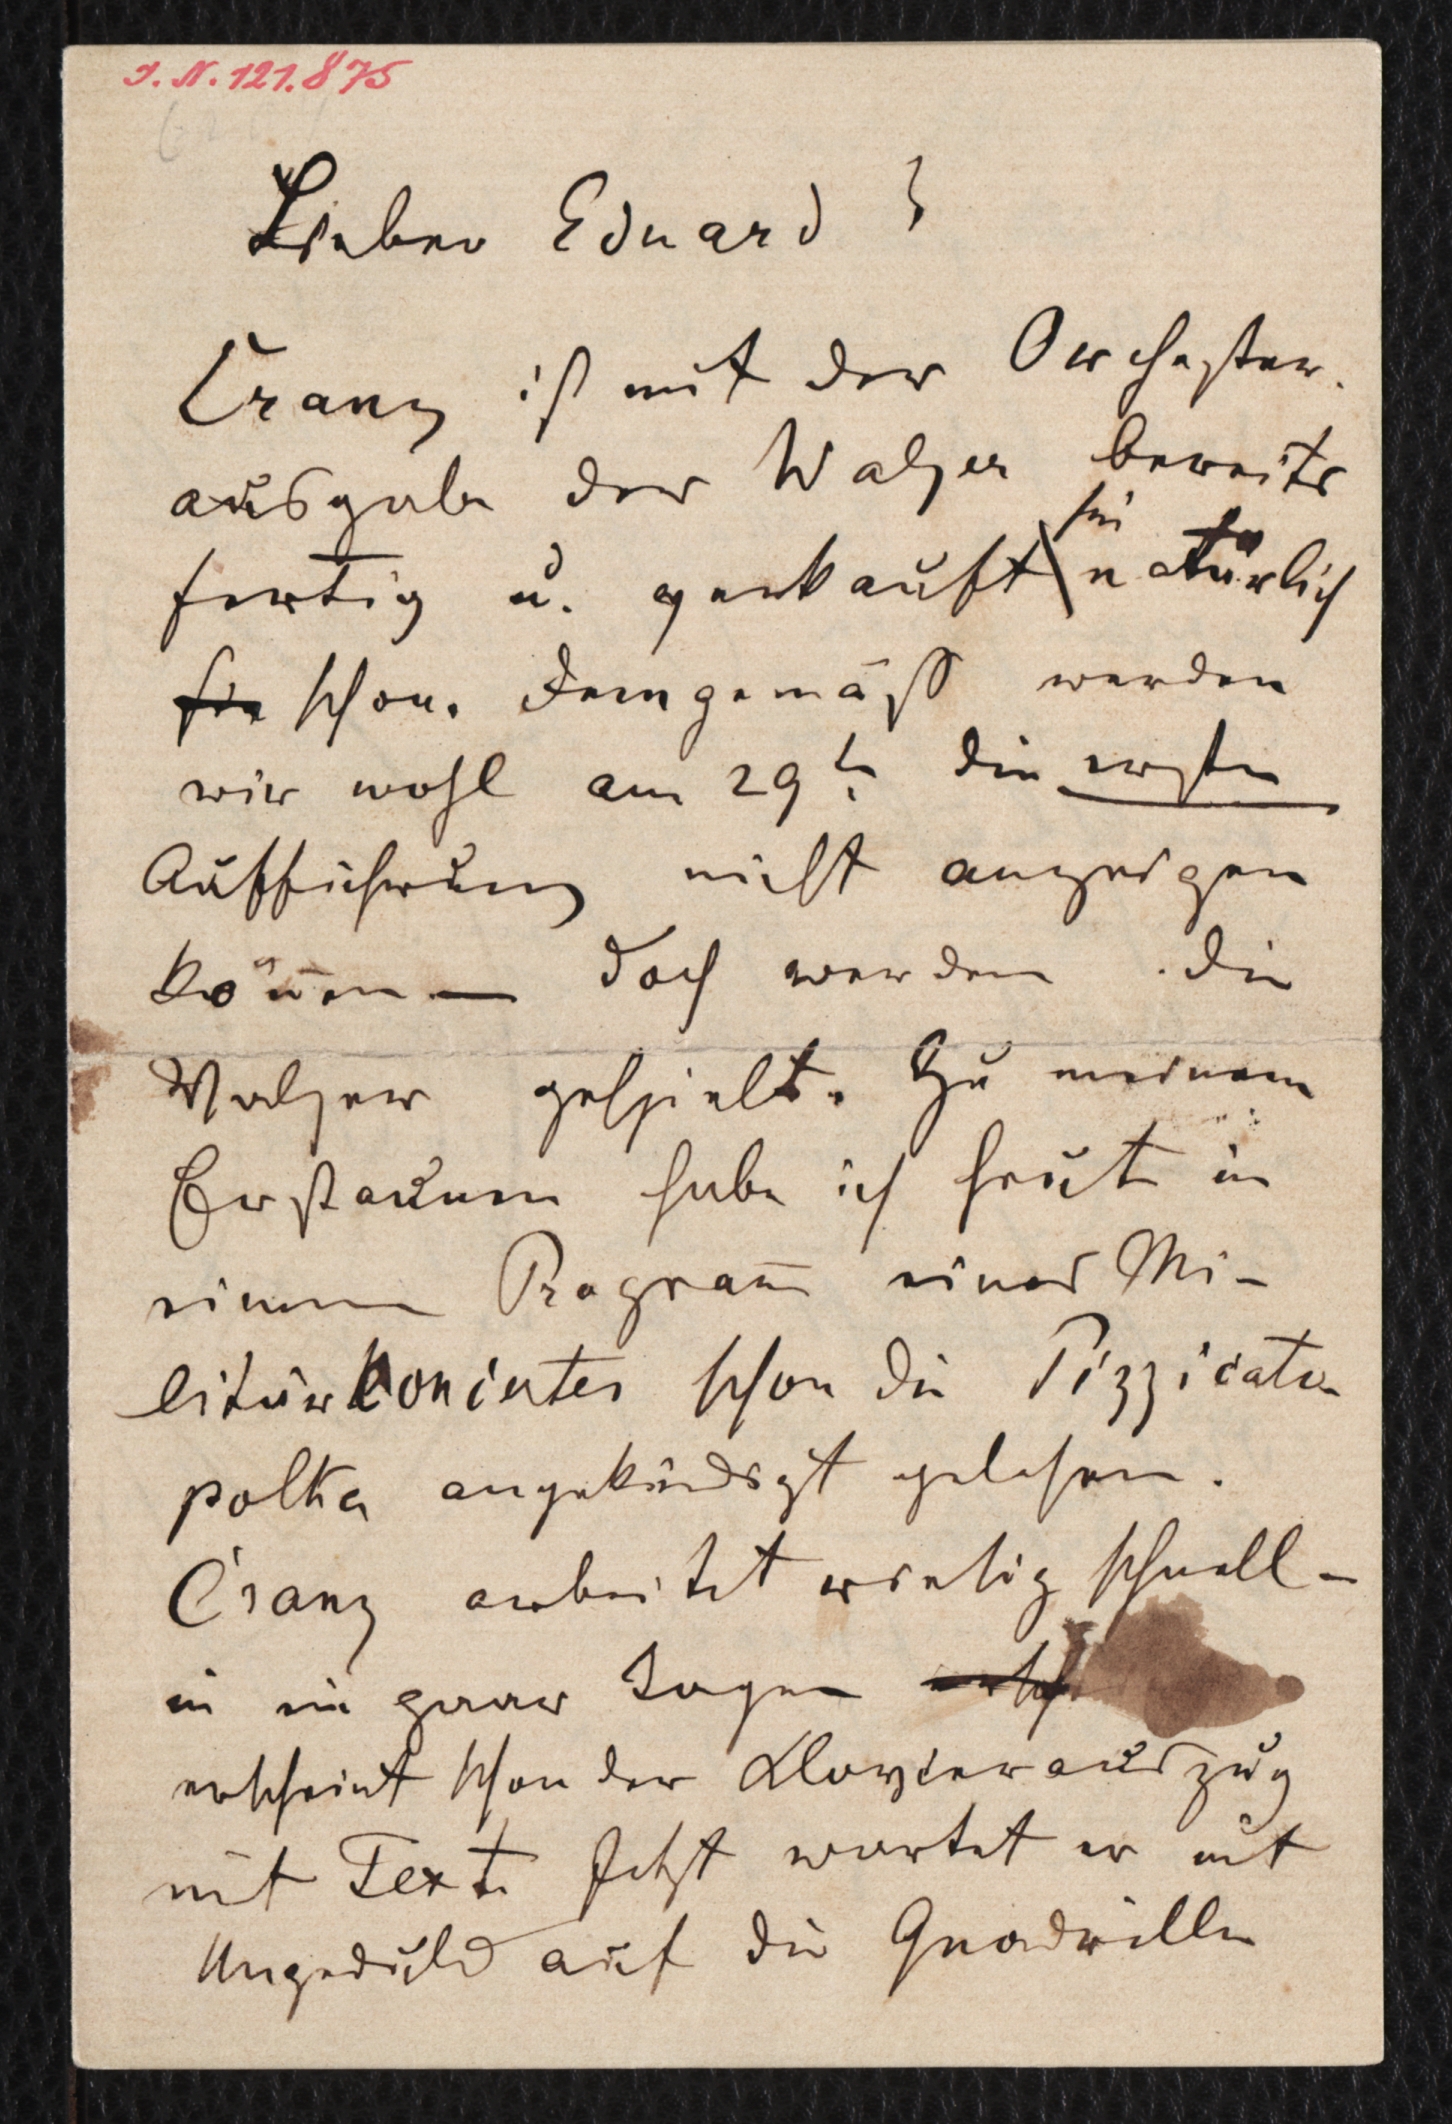 I. N. 121.875
Lieber Eduard!
Cranz ist mit der Orchester-
ausgabe der Walzer bereits
fertig u. verkauft sie natürlich
sie schon. Demgemäss werden
wir wohl am 29t. die erste
Aufführung nicht anzeigen
kön̄en — doch werden die
Walzer gespielt. Zu meinem
Erstaunen habe ich heut in
einem Program̄ eines Mi-
litärkoncertes schon die Pizzicato
polka angekündigt gelesen.
Cranz arbeitet riesig schnell –
in ein paar Tagen
erscheint schon der Klavierauszug
mit Text. Jetzt wartet er mit
Ungeduld auf die Quadrille